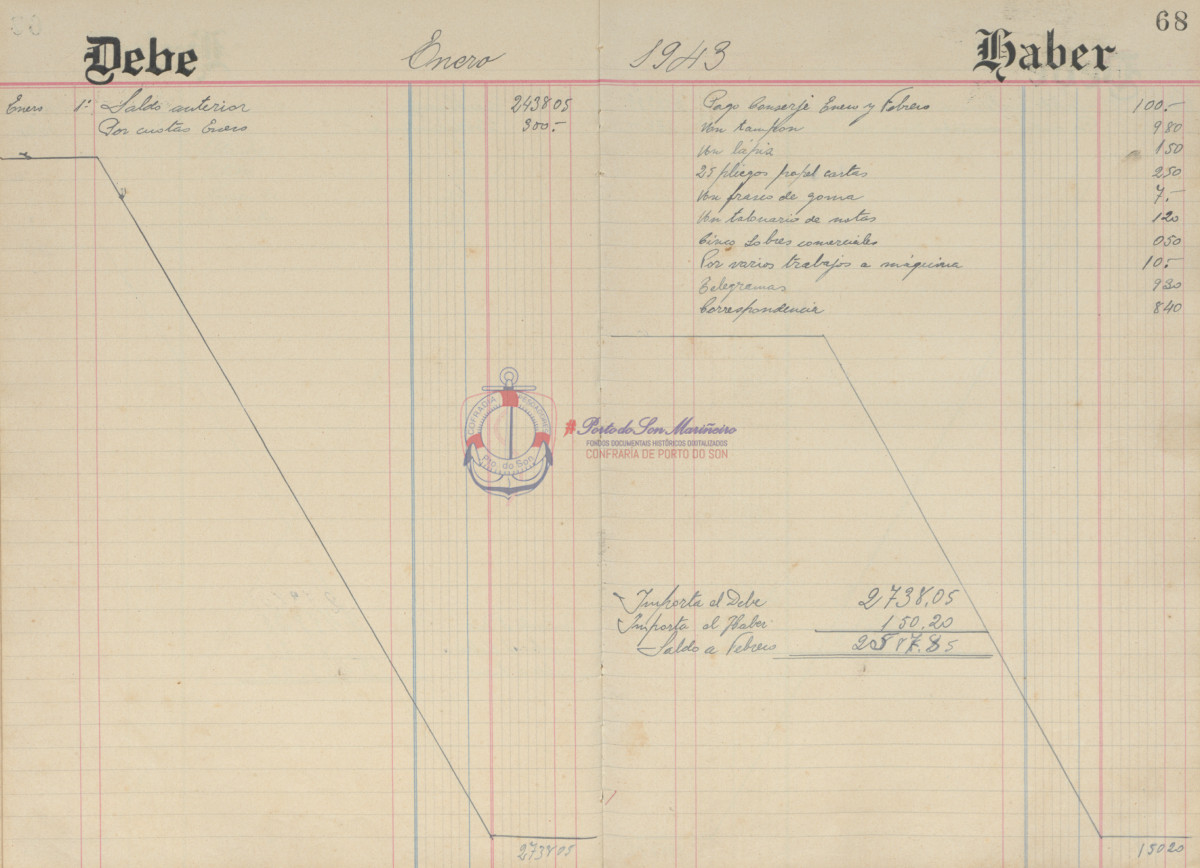 68
Debe
Enero
1943
Haber
Enero 1º Saldo anterior 2438 05
Por custas Enero 300.-
2738 05
Pago Conserje Enero y Febrero 100.-
Un tampon 9 80
Un lápiz 1 50
25 pliegos papel cartas 2 50
Un frasco de goma 7.-
Un talonario de notas 1 20
Cinco sobres comerciales 0 50
Por varios trabajos a máquina 10.-
Telegramas 9 30
Correspondencia 8 40
Importa el Debe 2738,05
Importa el Haber 150.20
Saldo a Febrero 2587.85
150 20
COFRADIA PESCADORES
Pto. do Son
Porto do Son Mariñeiro
FONDOS DOCUMENTAIS HISTÓRICOS DIXITALIZADOS
CONFRARÍA DE PORTO DO SON